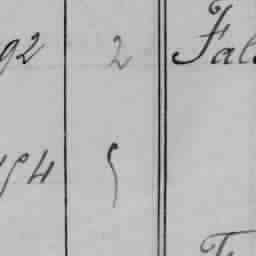 92 2 Fal
54 5